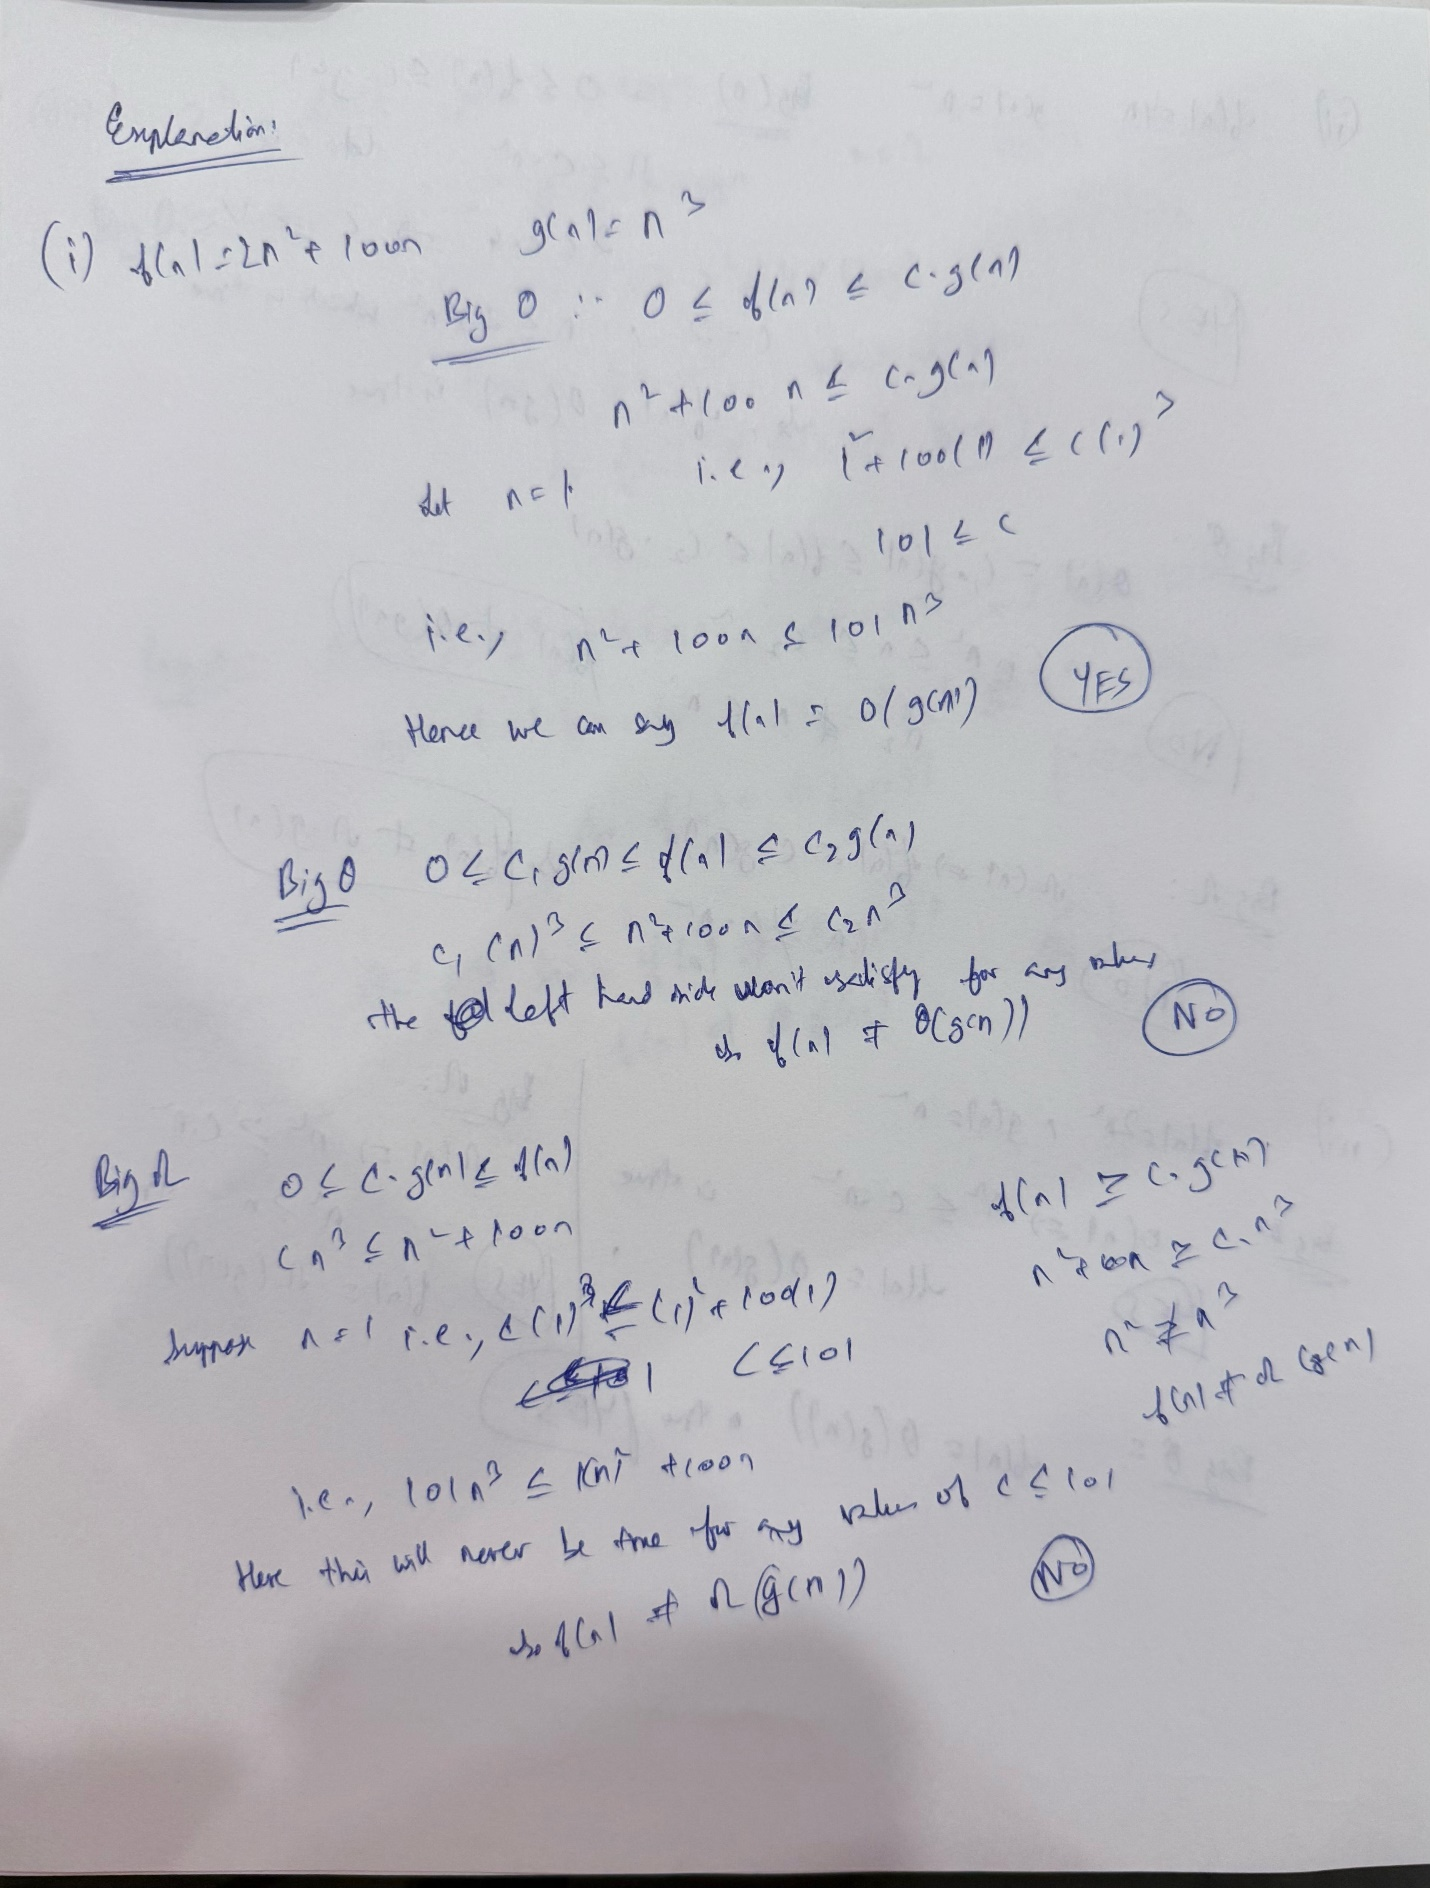 Explanation:
(i) f(n) = 2n² + 100n g(n) = n³
Big O :- 0 ≤ f(n) ≤ c.g(n)
n² + 100 n ≤ c.g(n)
Let n = 1. i.e., 1² + 100(1) ≤ c(1)³
101 ≤ c
i.e., n² + 100n ≤ 101 n³
YES
Hence we can say f(n) = O(g(n))
Big θ 0 ≤ C₁ g(n) ≤ f(n) ≤ C₂ g(n)
C₁ (n)³ ≤ n² + 100n ≤ C₂ n³
the left hand side won't satisfy for any values
so f(n) ≠ θ(g(n))
NO
Big Ω 0 ≤ C. g(n) ≤ f(n)
C n³ ≤ n² + 100n
Suppose n = 1 i.e., c(1)³ ≤ (1)² + 100(1)
C ≤ 101
f(n) ≥ C. g(n)
n² + 100n ≥ C. n³
n² ≱ n³
f(n) ≠ Ω (g(n)
i.e., 101n³ ≤ 1(n)² + 100n
Here this will never be true for any values of c ≤ 101
so f(n) ≠ Ω (g(n))
NO